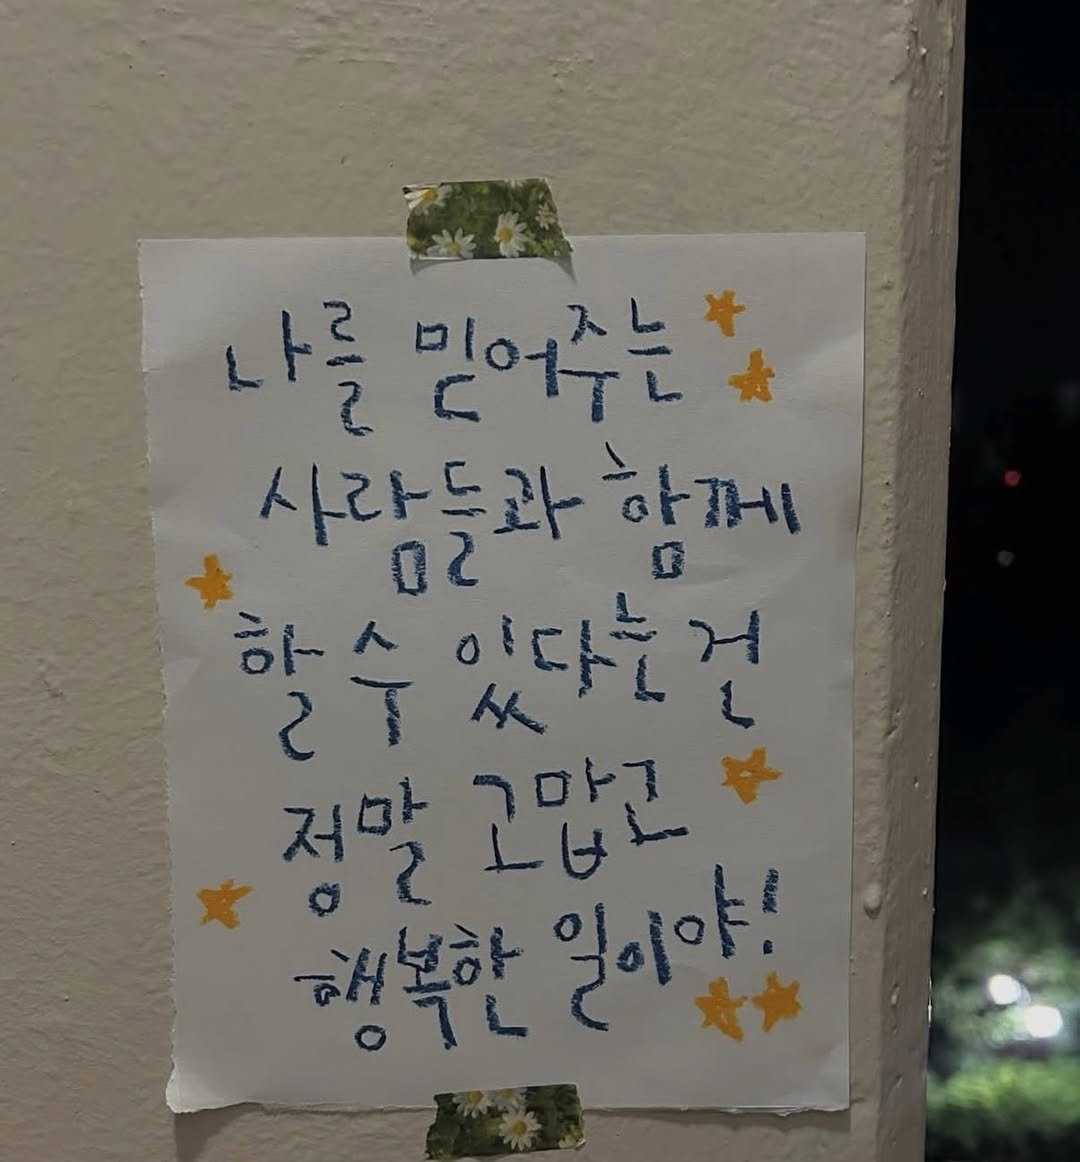 나를 믿어주는
사람들과 함께
할 수 있다는 건
정말 고맙고
행복한 일이야!